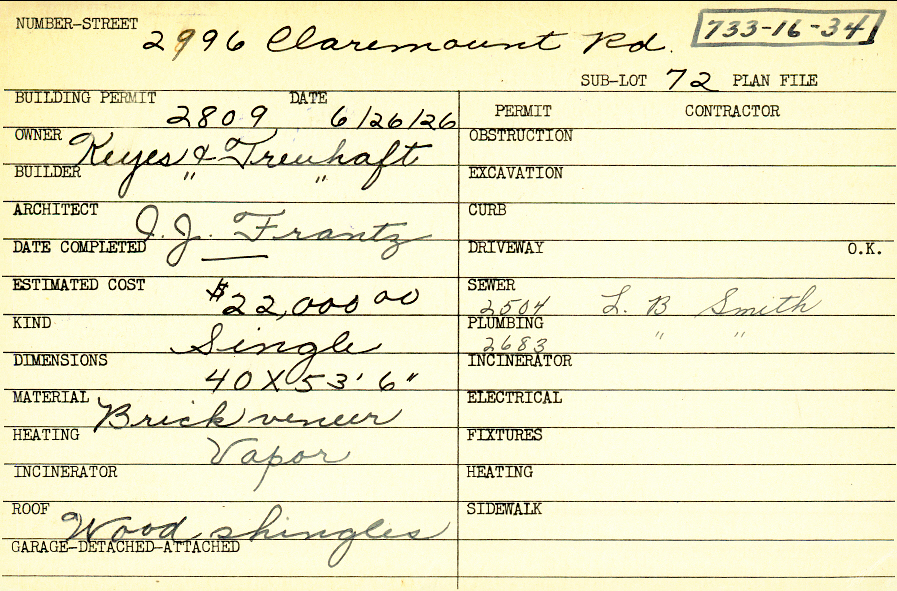 NUMBER-STREET 2996 Claremount Rd. 733-16-34
SUB-LOT 72 PLAN FILE
BUILDING PERMIT 2809 DATE 6/26/26
OWNER Keyes & Treuhaft
BUILDER " "
ARCHITECT J.J. Frantz
DATE COMPLETED —
ESTIMATED COST $22,000 00
KIND Single
DIMENSIONS 40 X 53' 6"
MATERIAL Brick veneer
HEATING Vapor
INCINERATOR
ROOF Wood shingles
GARAGE-DETACHED-ATTACHED
PERMIT CONTRACTOR
OBSTRUCTION
EXCAVATION
CURB
DRIVEWAY O.K.
SEWER
2504 L. B Smith
PLUMBING
2683 " "
INCINERATOR
ELECTRICAL
FIXTURES
HEATING
SIDEWALK